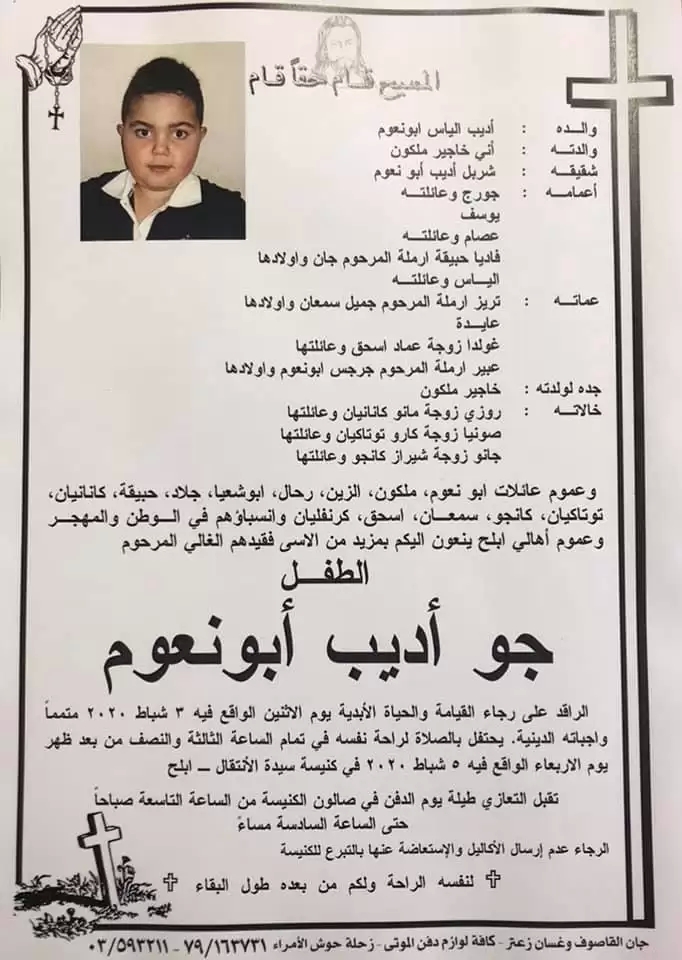 المسيح قام حقاً قام
والده : أديب الياس ابونعوم
والدته : أني خاجير ملكون
شقيقه : شربل أديب أبو نعوم
أعمامه : جورج وعائلته
يوسف
عصام وعائلته
فاديا حبيقة ارملة المرحوم جان واولادها
الياس وعائلته
عماته : تريز ارملة المرحوم جميل سمعان واولادها
عايدة
غولدا زوجة عماد اسحق وعائلتها
عبير ارملة المرحوم جرجس ابونعوم واولادها
جده لولدته : خاجير ملكون
خالاته : روزي زوجة مانو كانانيان وعائلتها
صونيا زوجة كارو توتاكيان وعائلتها
جانو زوجة شيراز كانجو وعائلتها
وعموم عائلات ابو نعوم، ملكون، الزين، رحال، ابوشعيا، جلاد، حبيقة، كانانيان،
توتاكيان، كانجو، سمعان، اسحق، كرنفليان وانسباؤهم في الوطن والمهجر
وعموم أهالي ابلح ينعون اليكم بمزيد من الاسى فقيدهم الغالي المرحوم
الطفل
جو أديب أبونعوم
الراقد على رجاء القيامة والحياة الأبدية يوم الاثنين الواقع فيه ٣ شباط ٢٠٢٠ متمماً
واجباته الدينية. يحتفل بالصلاة لراحة نفسه في تمام الساعة الثالثة والنصف من بعد ظهر
يوم الاربعاء الواقع فيه ٥ شباط ٢٠٢٠ في كنيسة سيدة الأنتقال ــ ابلح
تقبل التعازي طيلة يوم الدفن في صالون الكنيسة من الساعة التاسعة صباحاً
حتى الساعة السادسة مساءً
الرجاء عدم إرسال الأكاليل والإستعاضة عنها بالتبرع للكنيسة
✝ لنفسه الراحة ولكم من بعده طول البقاء ✝
جان القاصوف وغسان زعتر - كافة لوازم دفن الموتى - زحلة حوش الأمراء ٧٩/١٦٣٧٣١ - ٠٣/٥٩٣٢١١